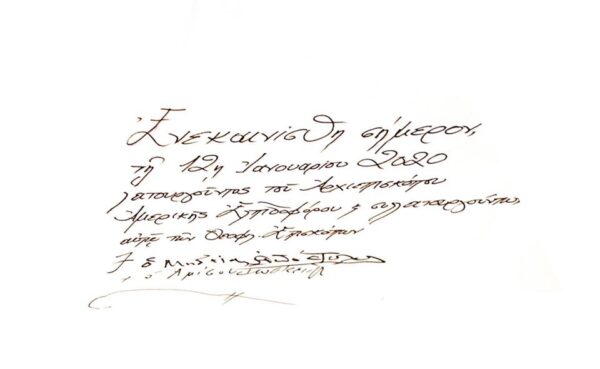 Ἐνεκαινίσθη σήμερον,
τῇ 12ῃ Ἰανουαρίου 2020
λειτουργοῦντος τοῦ Ἀρχιεπισκόπου
Ἀμερικῆς Ἐλπιδοφόρου ϗ συλλειτουργούντων
αὐτῷ τῶν Θεοφιλ. Ἐπισκόπων
† ὁ Μηδείας Ἀπόστολος
† ὁ